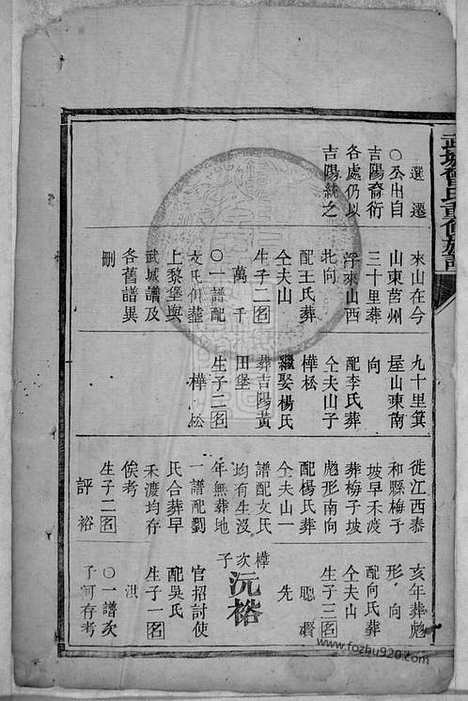 武城曾氏重修族譜
選遷
〇公出自
吉陽裔衍
各處仍以
吉陽統之
來山在今
山東莒州
三十里葬
浮來山西
北向
配王氏葬
仝夫山
生子二名
萬 千
〇一譜配
文氏俱葬
上黎堡與
武城譜及
各舊譜異
刪
九十里箕
屋山東南
向
配李氏葬
仝夫山子
樺松
繼娶楊氏
葬吉陽黃
田堡
生子二名
樺 松
徙江西泰
和縣梅子
坡早禾渡
葬梅子坡
彪形南向
配楊氏葬
仝夫山一
譜配文氏
均有生沒
年無葬地
一譜配劉
氏合葬早
禾渡均存
俟考
生子二名
評 裕
亥年葬彪
形 向
配向氏葬
仝夫山
生子三名
聰
先
樺次子
沅裕
官招討使
配吳氏
生子一名
洪
〇一譜次
子 存考
www.fozhu920.com